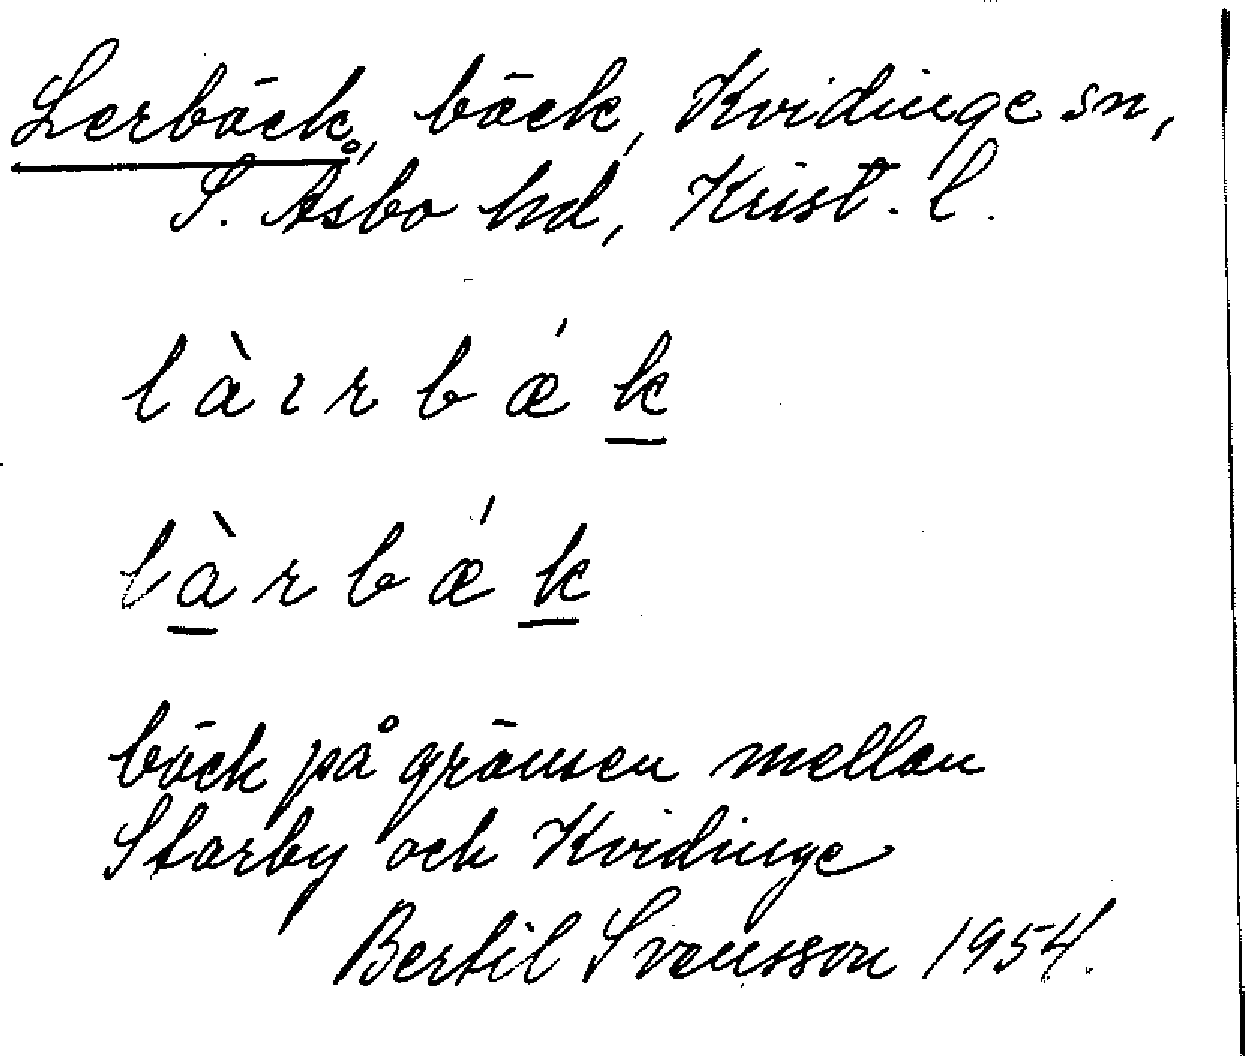 Lerbäck, bäck, Kvidinge sn,
S. Åsbo hd, Krist. l.
làırbǽk
làrbǽk
bäck på gränsen mellan
Starby och Kvidinge
Bertil Svensson 1954.